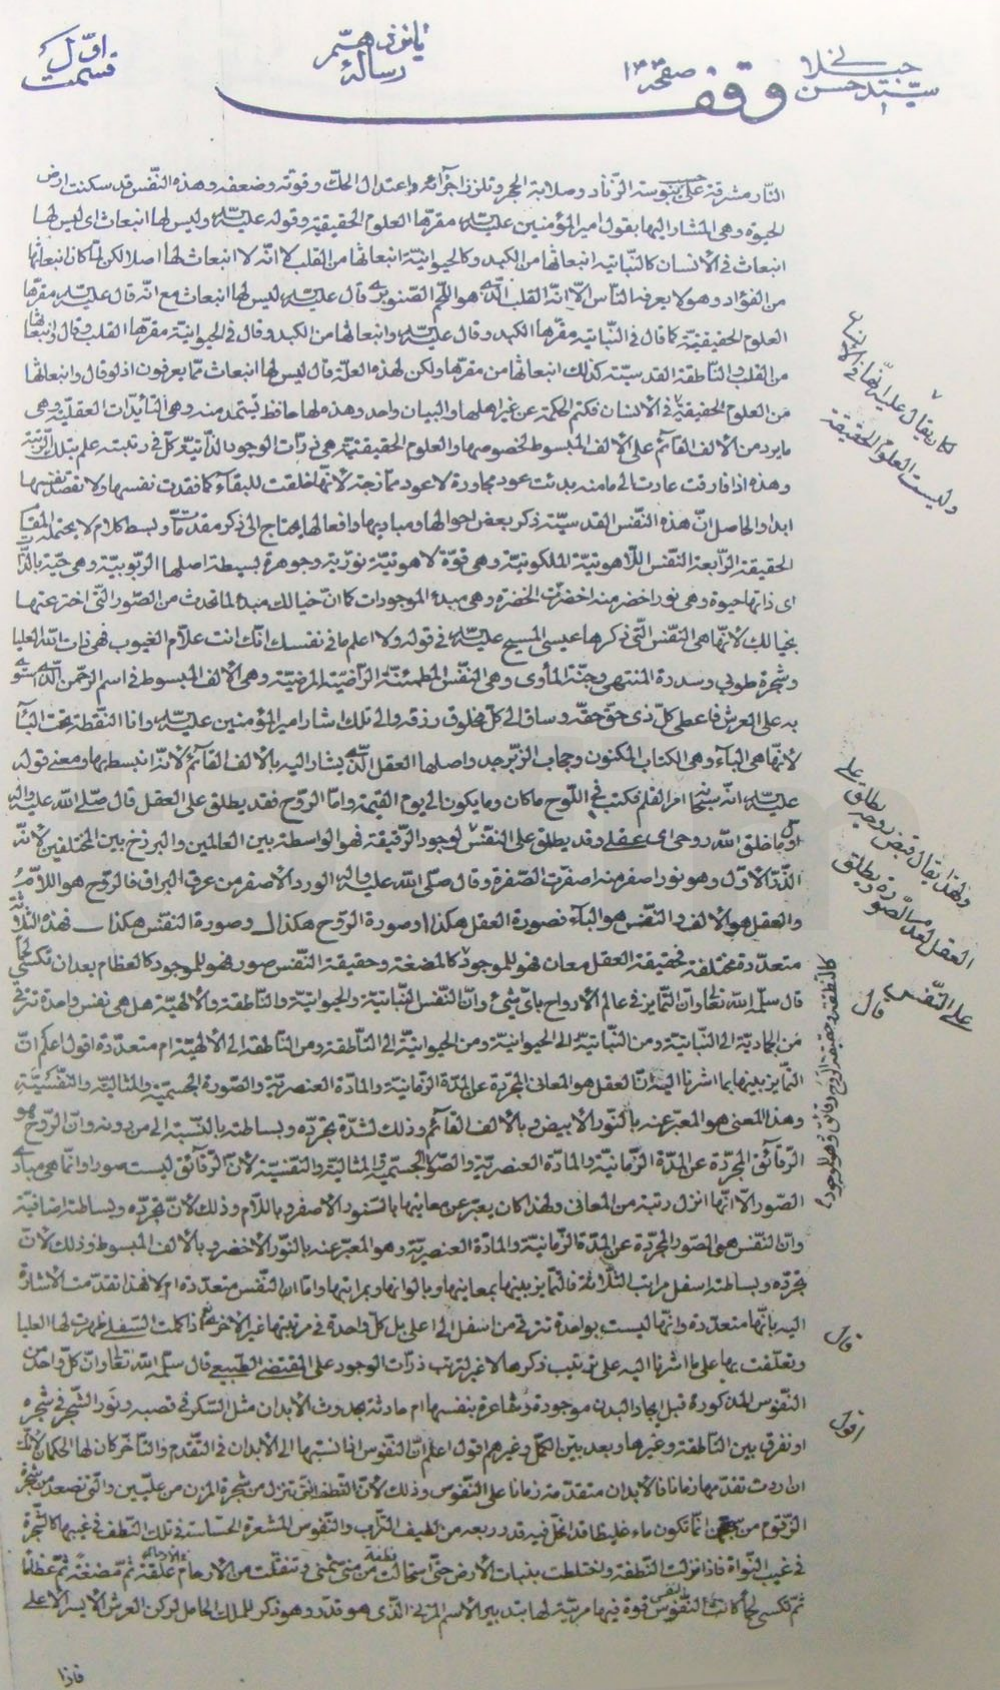 اوّل
قسمت
پانزدهم
رسالۀ
صفحۀ ١٣٣
وقف
سيّد حسن
النّار مشرقة على حسب يبوسته الزناد وصلابة الحجر وتلزز اجزائه واعتدال الحكّ وقوته وضعفه وهذه النّفس قد سكنت ارض
الحيوة وهى المشار اليها بقول امير المؤمنين عليه السّلم مقرّها العلوم الحقيقيّة وقوله عليه السّلم وليس لها انبعاث اى ليس لها
انبعاث فى الانسان كالنّباتيه انبعاثها من الكبد وكالحيوانيّة انبعاثها من القلب لا انّه لا انبعاث لها اصلا لكن لمّا كان انبعاثها
من الفؤاد وهو لا يعرفه النّاس الّا انّه القلب الّذى هو اللّحم الصّنوبرى قال عليه السّلم ليس لها انبعاث مع انّه قال عليه السّلم مقرّها
العلوم الحقيقيّة كما قال فى النّباتيه مقرّها الكبد وقال عليه السّلم وانبعاثها من الكبد وقال فى الحيوانيّة مقرّها القلب وقال وانبعاثها
من القلب والنّاطقة القدسيّة كذلك انبعاثها من مقرّها ولكن لهذه العلّة قال ليس لها انبعاث ممّا يعرفون اذ لو قال وانبعاثها
من العلوم الحقيقيّة فى الانسان فكتم الحكمة عن غير اهلها والبيان واحد وهذه لها حافظ يستمد منه وهى التأييدات العقليّة وهى
ما يرد من الالف القائم على الالف المبسوط لخصوصها والعلوم الحقيقيّة هى ذرات الوجود الذّاتية كلّ فى رتبته علم بتلك الرّتبة
وهذه اذا فارقت عادت الى ما منه بدئت عود مجاورة لا عود ممازجة لانّها خلقت للبقاء كما فقدت نفسها ولا تفقد نفسها
ابدا والحاصل انّ هذه النّفس القدسيّة ذكر بعض احوالها ومباديها وافعالها يحتاج الى ذكر مقدّمات وبسط كلام لا يحتمله المقام
الحقيقة الرّابعة النّفس اللّاهوتيّة الملكوتيّة وهى قوّة لاهوتيّة نوريّة وجوهرة بسيطة اصلها الرّبوبيّة وهى حيّة بالذّات
اى ذاتها حيوة وهى نور اخضر منه اخضرّت الخضرة وهى مبدء الموجودات كما انّ خيالك مبدء لما تحدث من الصّور التى اخترعتها
بخيالك لانّها هى النّفس الّتى ذكرها عيسى المسيح عليه السّلم فى قوله ولا اعلم ما فى نفسك انّك انت علّام الغيوب فهى ذات الله العليا
وشجرة طوبى وسدرة المنتهى وجنّة المأوى وهى النّفس المطمئنّة الرّاضية المرضيّة وهى الالف المبسوط فى اسم الرّحمن الّذى استوى
به على العرش فاعطى كلّ ذى حقّ حقّه وساق الى كلّ مخلوق رزقه والى تلك اشار امير المؤمنين عليه السّلم وانا النّقطة تحت الباء
لانّها هى الباء وهى الكتاب المكنون وحجاب الزّبرجد واصلها العقل الّذى يشار اليه بالالف القائم لانّه انبسط بها ومعنى قوله
عليه السّلم انّه سبحانه امر القلم فكتب فى اللّوح ما كان وما يكون الى يوم القيمة وامّا الرّوح فقد يطلق على العقل قال صلّى الله عليه وآله
اوّل ما خلق الله روحى اى عقلى وقد يطلق على النّفس لوجود الرّقيقة فهو الواسطة بين العالمين والبرزخ بين المختلفين لانّه
الذّرّ الاوّل وهو نور اصفر منه اصفرّت الصّفرة وقال صلّى الله عليه وآله الورد الاصفر من عرق البراق فالرّوح هو اللّام
والعقل هو الالف والنّفس هو الباء فصورة العقل هكذا ا وصورة الرّوح هكذا ل وصورة النّفس هكذا ــ فهذه الثلاثة
متعدّدة مختلفة فحقيقة العقل معان فهو للموجود كالمضغة وحقيقة النّفس صور فهو للموجود كالعظام بعد ان تكسى لحما
قال سلّمه الله تعالى وانّ التمايز فى عالم الارواح باىّ شىء وانّ النّفس النّباتيّة والحيوانيّة والنّاطقة والالهيّة هل هى نفس واحدة تترقى
من الجماديّة الى النّباتيّة ومن النّباتيّة الى الحيوانيّة ومن الحيوانيّة الى النّاطقة ومن النّاطقة الى الالهيّة ام متعدّدة اقول اعلم انّ
التّمايز بينها بما اشرنا اليه انّ العقل هو المعانى المجرّدة عن المدّة الزّمانيّة والمادّة العنصريّة والصّورة الجسميّة والمثاليّة والنّفسيّة
وهذا المعنى هو المعبّر عنه بالنّور الابيض وبالالف القائم وذلك لشدّة تجرّده وبساطته بالنّسبة الى من دونه وانّ الرّوح هو
الرّقائق المجرّدة عن المدّة الزّمانيّة والمادّة العنصريّة والصّور الجسميّة والمثاليّة والنّفسيّة لانّ الرّقائق ليست صورا وانّما هى مبادى
الصّور الّا انّها انزل رتبة من المعانى ولهذا كان يعبّر عن معاينها بالنّور الاصفر وباللّام وذلك لانّ تجرّده وبساطته اضافيّة
وانّ النّفس هى الصّور المجرّدة عن المدّة الزّمانيّة والمادّة العنصريّة وهو المعبّر عنه بالنّور الاخضر وبالالف المبسوط وذلك لانّ
تجرّده وبساطته اسفل مراتب الثّلاثة فالتّمايز بينها بمعاينها وبالوانها وبمراتبها وامّا انّ النّفس متعدّدة ام لا فهذا تقدّمت الاشارة
اليه بانّها متعدّدة وانّها ليست بواحدة تترقى من اسفل الى اعلى بل كلّ واحدة فى مرتبتها غير الاخرى فاذا كملت السّفلى ظهرت لها العليا
وتعلّقت بها على ما اشرنا اليه على ترتيب ذكرها لا غير لترتب ذرات الوجود على المقتضى الطّبيعى قال سلّمه الله تعالى وانّ كلّ واحد من
النّفوس المذكورة قبل ايجاد البدن موجودة وشاعرة بنفسها ام حادثة بحدوث الابدان مثل السّكر فى قصبه ونور الشّجر فى شجره
او نفرق بين النّاطقة وغيرها وبعد بيّن الكمّل وغيرهم اقول اعلم انّ النّفوس اذا نسبتها الى الابدان فى التّقدم والتّأخر كان لها الحكمان لانّك
ان اردت تقدّمها زمانا فالابدان متقدّمة زمانا على النّفوس وذلك لانّ النّطفة الّتى تنزل من شجرة المزن من عليّين والّتى تصعد من شجرة
الزّقوم من سجّين انّما تكون ماء غليظا قد انحلّ فيه قدر ربعه من لطيف التّراب والنّفوس المشعرة الحسّاسة فى تلك النّطف فى غيبها كالشّجرة
فى غيب النّواة فاذا نزلت النّطفة واختلطت بنبات الارض حتّى استحالت نطفة من منى تمنى وتنقّلت من الارحام علقة ثمّ مضغة ثمّ عظاما
ثمّ تكسى لحما كانت النّفوس قوة فيها مربّية لها بتدبير الاسم المربّى الّذى هو قدر وهو ذكر للملك الحامل لركن العرش الايسر الاعلى
فاذا
لا يقال عليه انّها فى الانسان
وليست العلوم الحقيقة
ولهذا يقال قبض روحه يطلق على
العقل لعدم الصّورة ويطلق
على النّفس
قال
كالنّطفة وحقيقة الرّوح رقائق فهو للموجود
قال
اقول